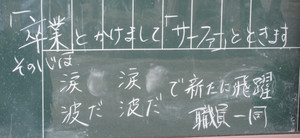 「卒業」とかけまして「サーファー」とときます
その心は
涙 涙で新たに飛躍
波だ 波だ
職員一同